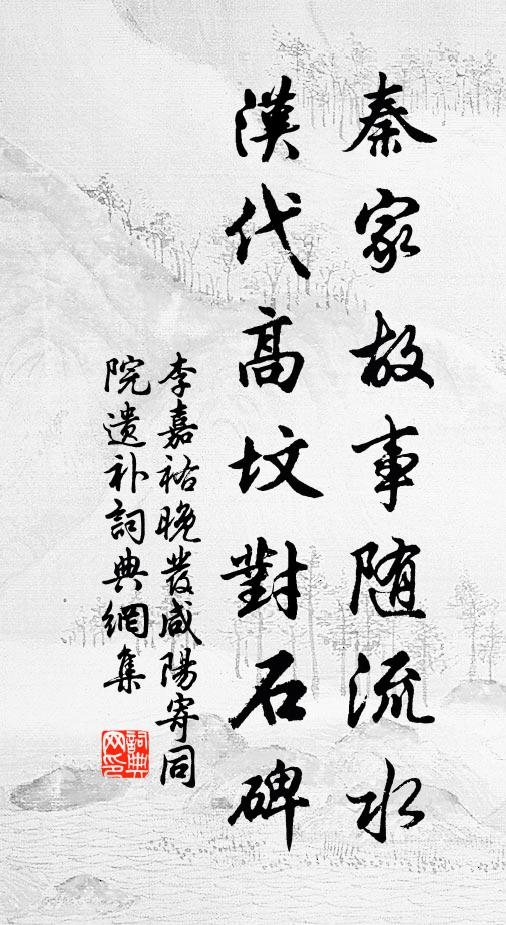 秦家故事随流水
漢代高坟對石碑
李嘉祐晚發咸陽寄同
院遗补詞典網集
詞典网印